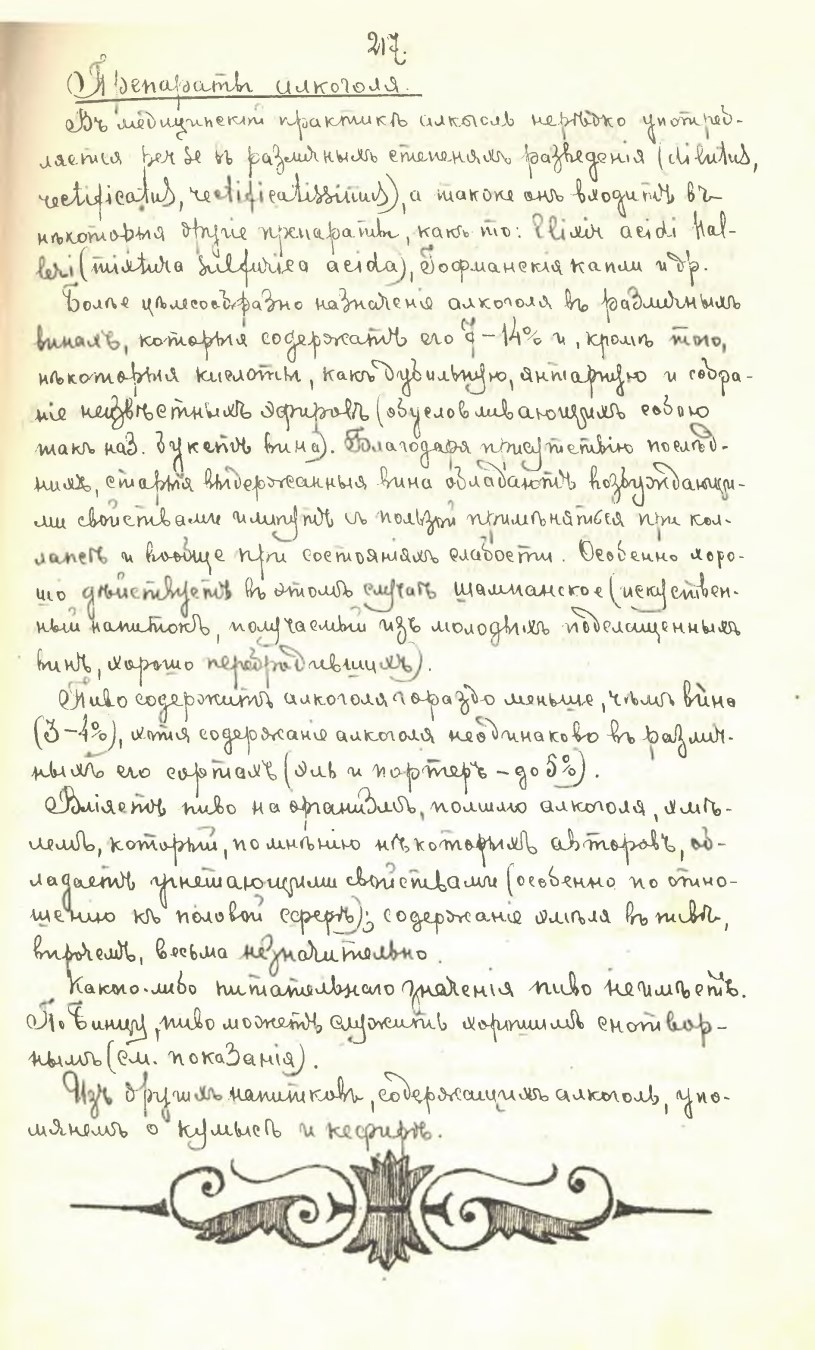 217.
Препараты алкоголя.
Въ медицинской практикѣ алкоголь нерѣдко употреб-
ляется per se въ различныхъ степеняхъ разведенія (dilutus,
rectificatus, rectificatissimus), а также онъ входитъ въ
нѣкоторыя другіе препараты, какъ то: Elixir acidi Hal-
leri (mixtura sulfurica acida), Гофманскія капли и др.
Болѣе цѣлесообразно назначеніе алкоголя въ различныхъ
винахъ, которыя содержатъ его 7-14% и, кромѣ того,
нѣкоторыя кислоты, какъ дубильную, янтарную и собра-
ніе неизвѣстныхъ эфировъ (обусловливающихъ собою
такъ наз. букетъ вина). Благодаря присутствію послѣд-
нихъ, старыя выдержанныя вина обладаютъ возбуждающи-
ми свойствами и могутъ съ пользой примѣняться при кол-
лапсѣ и вообще при состояніяхъ слабости. Особенно хоро-
шо дѣйствуетъ въ этомъ случаѣ шампанское (искуствен-
ный напитокъ, получаемый изъ молодыхъ подслащенныхъ
винъ, хорошо перебродившихъ).
Пиво содержитъ алкоголя гораздо меньше, чѣмъ вино
(3-4%), хотя содержаніе алкоголя неодинаково въ различ-
ныхъ его сортахъ (эль и портеръ - до 5%).
Вліяетъ пиво на организмъ, помимо алкоголя, хмѣ-
лемъ, который, по мнѣнію нѣкоторыхъ авторовъ, об-
ладаетъ угнетающими свойствами (особенно по отно-
шенію къ половой сферѣ); содержаніе хмѣля въ пивѣ,
впрочемъ, весьма незначительно.
Какого-либо питательнаго значенія пиво не имѣетъ.
По Бинцу, пиво можетъ служить хорошимъ снотвор-
нымъ (см. показанія).
Изъ другихъ напитковъ, содержащихъ алкоголь, упо-
мянемъ о кумысѣ и кефирѣ.